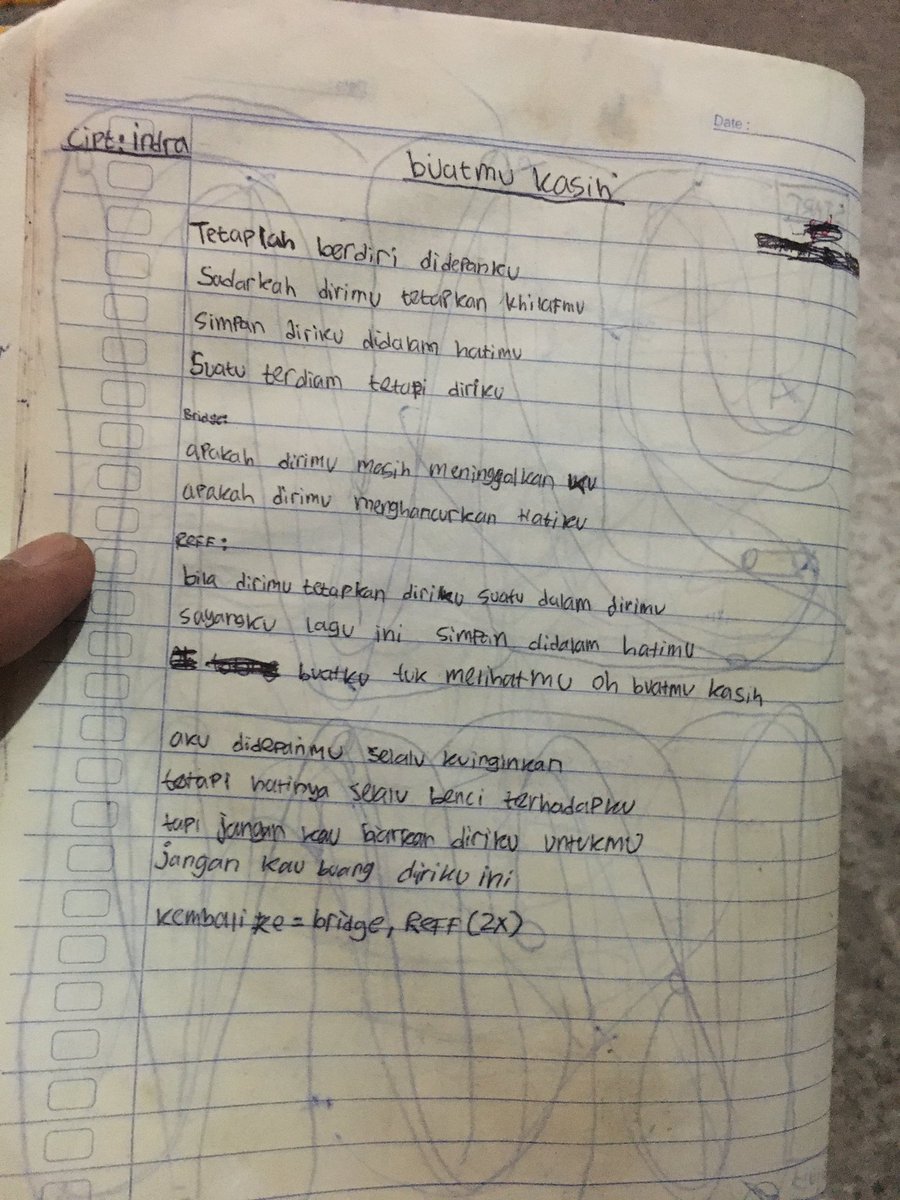 Date :
Cipt : indra
buatmu kasih
Tetaplah berdiri didepanku
Sadarkah dirimu tetapkan khilafmu
Simpan diriku didalam hatimu
Suatu terdiam tetapi diriku
Bridge:
apakah dirimu masih meninggalkan ku
apakah dirimu menghancurkan Hatiku
REFF :
bila dirimu tetapkan diriku suatu dalam dirimu
sayangku lagu ini simpan didalam hatimu
buatku tuk melihatmu oh buatmu kasih
aku didepanmu selalu kuinginkan
tetapi hatinya selalu benci terhadapku
tapi jangan kau biarkan diriku untukmu
jangan kau buang diriku ini
kembali ke = bridge, REFF (2x)